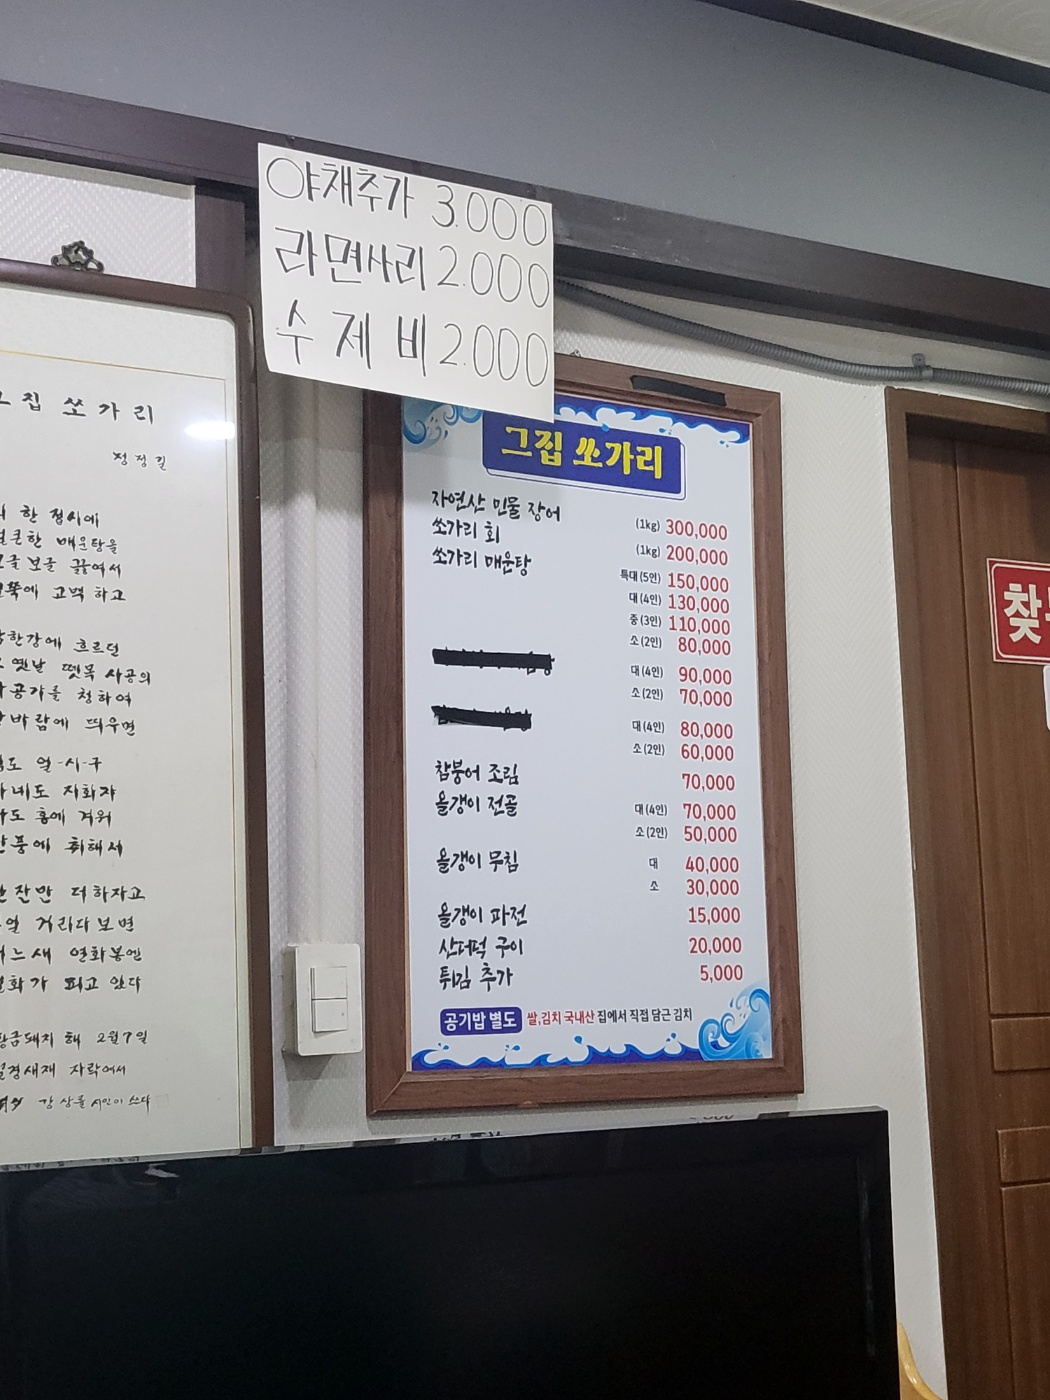 야채추가 3.000
라면사리 2.000
수제비 2.000
그집 쏘가리
자연산 민물 장어 (1kg) 300,000
쏘가리 회 (1kg) 200,000
쏘가리 매운탕 특대(5인) 150,000
대(4인) 130,000
중(3인) 110,000
소(2인) 80,000
대(4인) 90,000
소(2인) 70,000
대(4인) 80,000
소(2인) 60,000
참붕어 조림 70,000
올갱이 전골 대(4인) 70,000
소(2인) 50,000
올갱이 무침 대 40,000
소 30,000
올갱이 파전 15,000
산더덕 구이 20,000
튀김 추가 5,000
공기밥 별도 쌀,김치 국내산 집에서 직접 담근 김치
그집 쏘가리
정정길
한 접시에
얼큰한 매운탕을
보글 보글 끓여서
고백 하고
남한강에 흐르던
옛날 뗏목 사공의
공기를 청하여
바람에 띄우면
얼-시-구
지화자
흥에 겨워
취해서
잔만 더 하자고
거리다 보면
어느새 연화봉엔
피고 있다
황금돼지 해 2월 7일
자락에서
강 상률 시인이 쓰다
찾